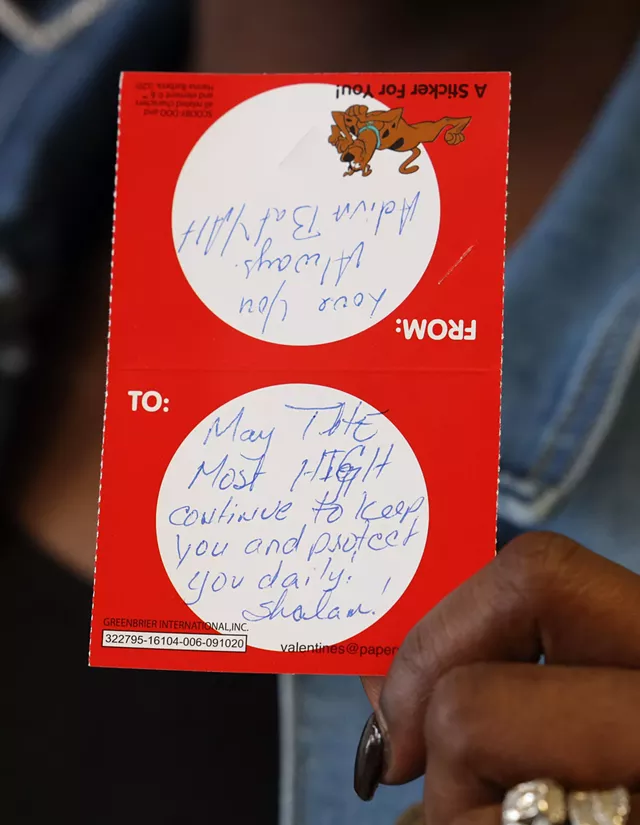 A Sticker For You!
SCOOBY-DOO and
all related characters
and elements © & ™
Hanna-Barbera.
FROM:
Love You
Always.
Adiva BatYAH
TO:
May THE
Most HIGH
continue to keep
you and protect
you daily!
Shalom!
GREENBRIER INTERNATIONAL,INC.
322795-16104-006-091020
valentines@paper